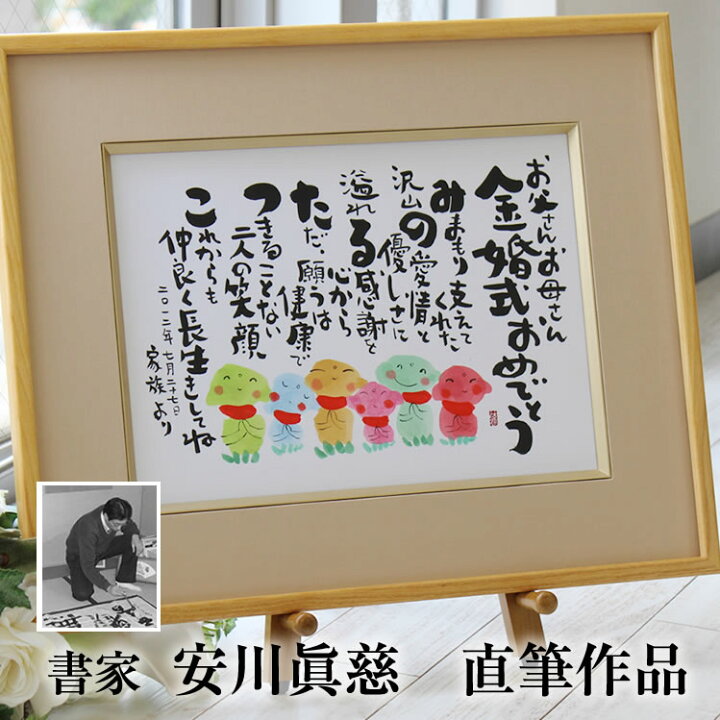 お父さんお母さん
金婚式おめでとう
みまもり支えてくれた
沢山の愛情と
優しさに
溢れる感謝を
心から
ただ、願うは
健康で
つきることない
二人の笑顔
これからも
仲良く長生きしてね
二〇一二年七月二十七日
家族より
書家 安川眞慈 直筆作品